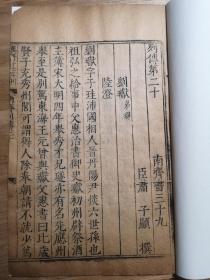 列傳第二十 南齊書三十九
臣蕭 子顯 撰
劉瓛弟璡
陸澄
劉瓛字子珪沛國相人晉丹陽尹惔六世孫也
祖弘之給事中父惠治書御史瓛初州辟祭酒
主簿宋大明四年舉秀才兄璲亦有名先應州
舉至是別駕東海王元曾與父惠書曰比歲
賢子充秀州閭可謂得人除奉朝請不就少篤